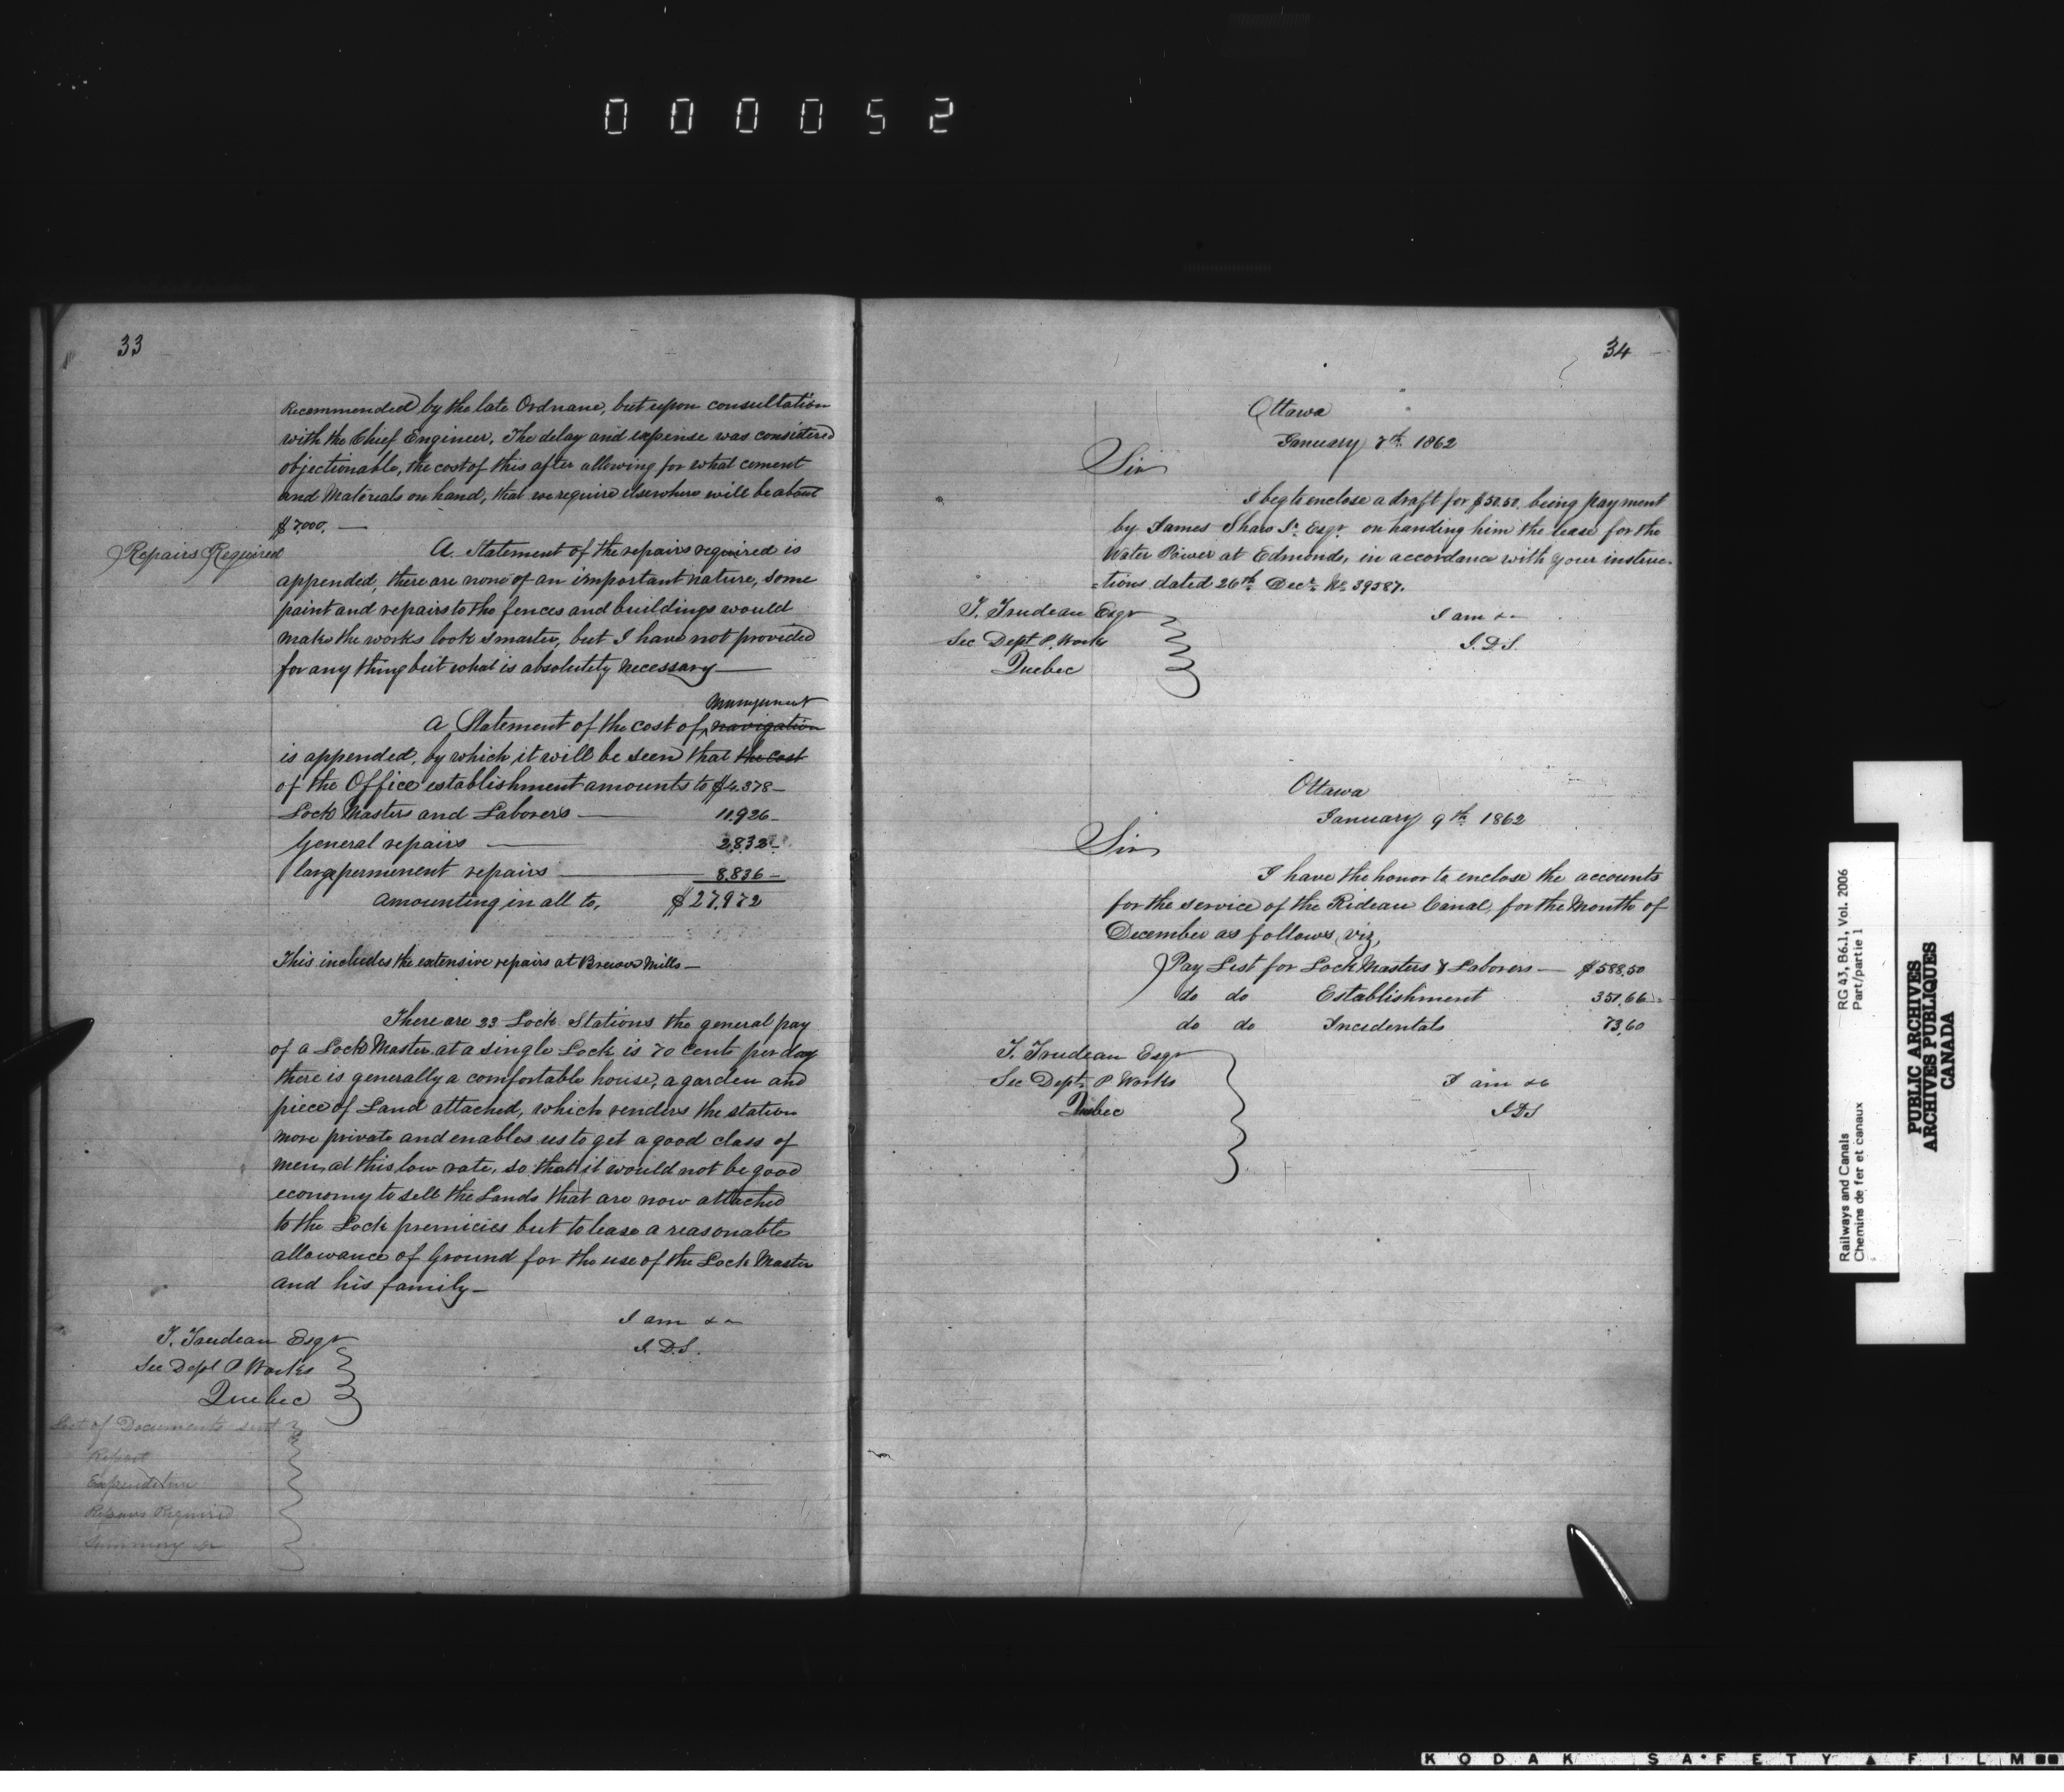 000052
33
Recommended by the late Ordnane, but upon consultation
with the Chief Engineer, The delay and expense was considered
objectionable, the cost of this after allowing for what cement
and Materials on hand, that we require elsewhere will be about
$7000. —
Repairs Required
A Statement of the repairs required is
appended, there are none of an important nature, some
paint and repairs to the fences and buildings would
make the works look smarter, but I have not provided
for any thing but what is absolutely necessary —
Management
A Statement of the cost of navigation
is appended, by which it will be seen that the cost
of the Office establishment amounts to $4.378 —
Lock Masters and Laborers — 11.926 —
General repairs — 2.832 —
large permenent repairs — 8.836 —
amounting in all to, $27.972
This includes the extensive repairs at Brewers Mills —
There are 23 Lock Stations the general pay
of a Lock Master at a single Lock is 70 cents per day
there is generally a comfortable house, a garden and
piece of Land attached, which renders the station
more private and enables us to get a good class of
men at this low rate, so that it would not be good
economy to sell the Lands that are now attached
to the Lock premicies but to lease a reasonable
allowance of Ground for the use of the Lock Master
and his family —
I am &c
J.D.S.
T. Trudeau Esqr
Sec Dept P Works
Quebec
List of Documents sent
Report
Expenditure
Repairs Required
Summary &c
34
Ottawa
January 7th 1862
Sir
I beg to enclose a draft for $50.50, being payment
by James Shaw Sr. Esqr. on handing him the lease for the
Water Power at Edmonds, in accordance with your instruc-
-tions dated 26th Decr No 39587.
I am &c
J.D.S.
T. Trudeau Esqr
Sec Dept P. Works
Quebec
Ottawa
January 9th 1862
Sir
I have the honor to enclose the accounts
for the service of the Rideau Canal, for the Month of
December as follows, viz,
Pay List for Lock Masters & Laborers — $588.50
do do Establishment 351.66
do do Incedentals 73.60
I am &c
JDS
T. Trudeau Esqr
Sec Dept. P Works
Quebec
Railways and Canals RG 43, B6.1, Vol. 2006
Chemins de fer et canaux Part/partie 1
PUBLIC ARCHIVES
ARCHIVES PUBLIQUES
CANADA
KODAK SAFETY FILM